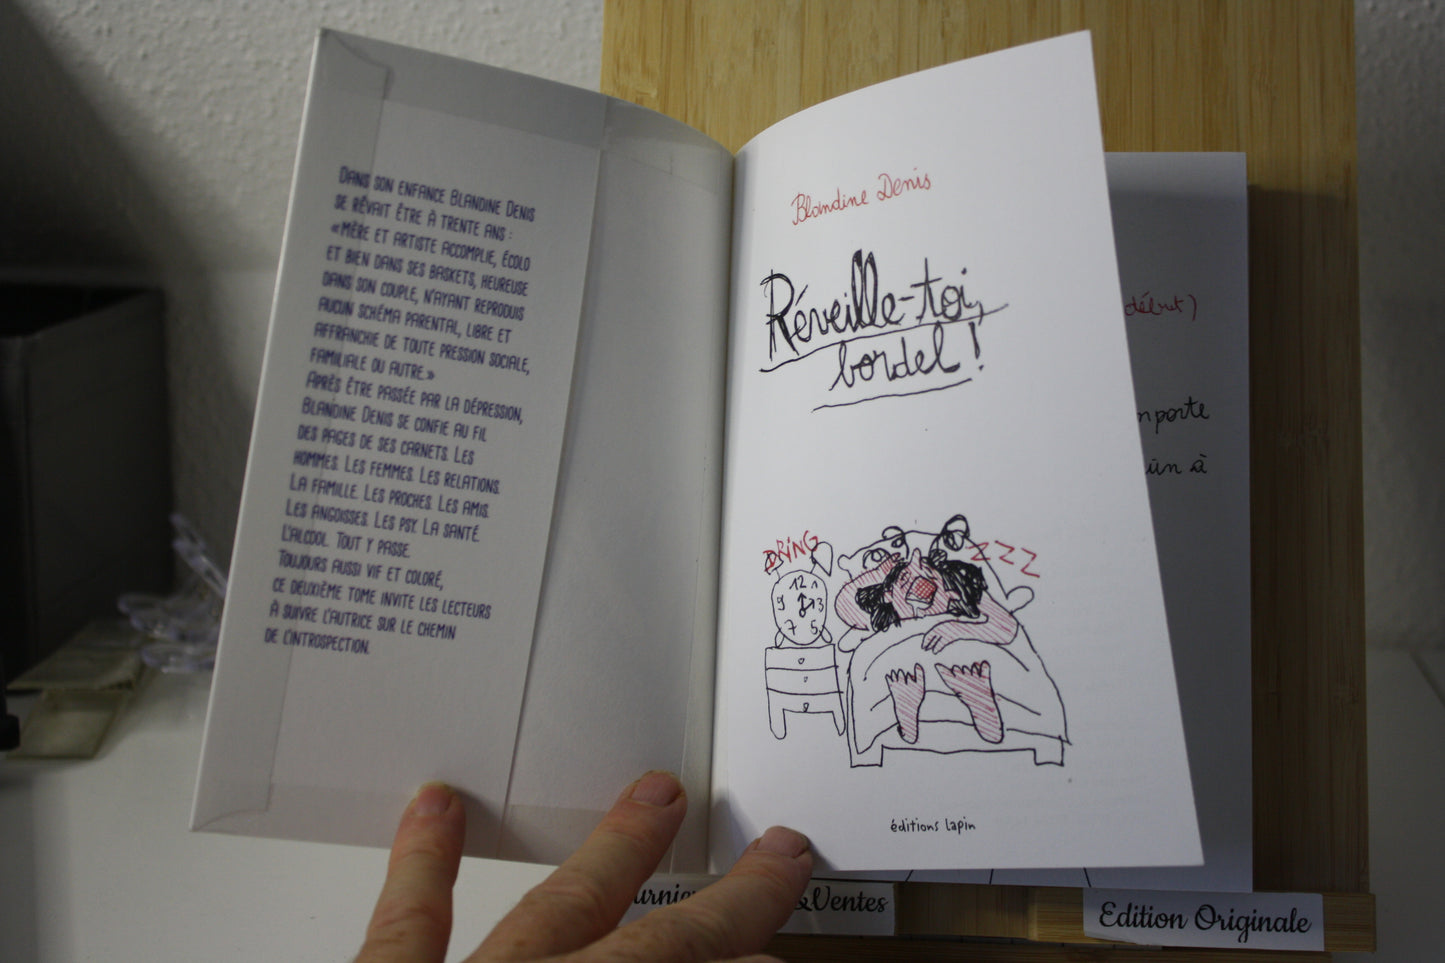 DANS SON ENFANCE BLANDINE DENIS
SE RÊVAIT ÊTRE À TRENTE ANS :
« MÈRE ET ARTISTE ACCOMPLIE, ÉCOLO
ET BIEN DANS SES BASKETS, HEUREUSE
DANS SON COUPLE, N'AYANT REPRODUIS
AUCUN SCHÉMA PARENTAL, LIBRE ET
AFFRANCHIE DE TOUTE PRESSION SOCIALE,
FAMILIALE OU AUTRE. »
APRÈS ÊTRE PASSÉE PAR LA DÉPRESSION,
BLANDINE DENIS SE CONFIE AU FIL
DES PAGES DE SES CARNETS. LES
HOMMES. LES FEMMES. LES RELATIONS.
LA FAMILLE. LES PROCHES. LES AMIS.
LES ANGOISSES. LES PSY. LA SANTÉ.
L'ALCOOL. TOUT Y PASSE.
TOUJOURS AUSSI VIF ET COLORÉ,
CE DEUXIÈME TOME INVITE LES LECTEURS
À SUIVRE L'AUTRICE SUR LE CHEMIN
DE L'INTROSPECTION.
Blandine Denis
Réveille-toi,
bordel !
DRING
ZZZ
12 1
9 3
7 5
éditions lapin
début)
nporte
à
&Ventes
Edition Originale